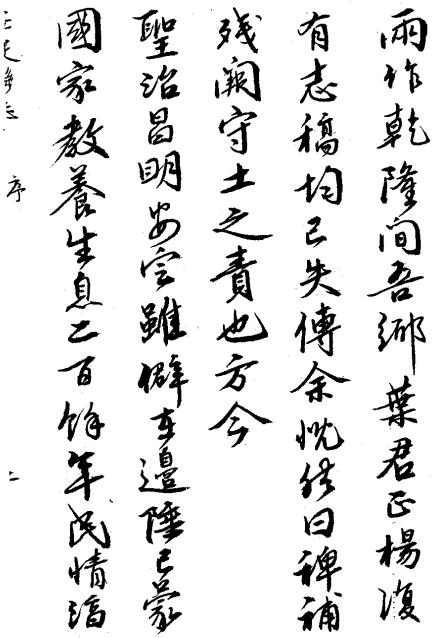 兩作乾隆間吾鄉葉君正楊復
有志稿均已失傳余怳然曰稗補
殘闕守土之責也方今
聖治昌明安定雖僻在邊陲已蒙
國家教養生息二百餘年民情
序
二